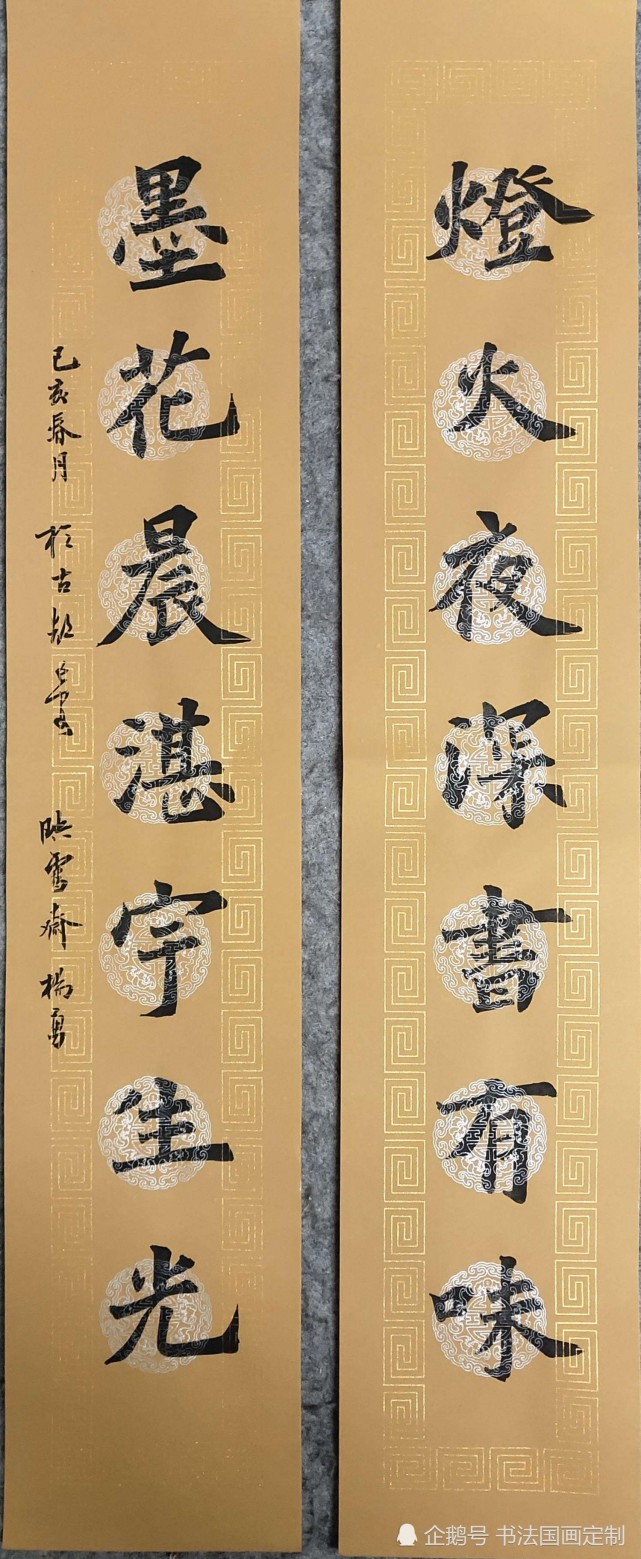 燈火夜深書有味
墨花晨湛宇生光
己亥春月 於古都 映雪齋 楊勇
企鹅号 书法国画定制